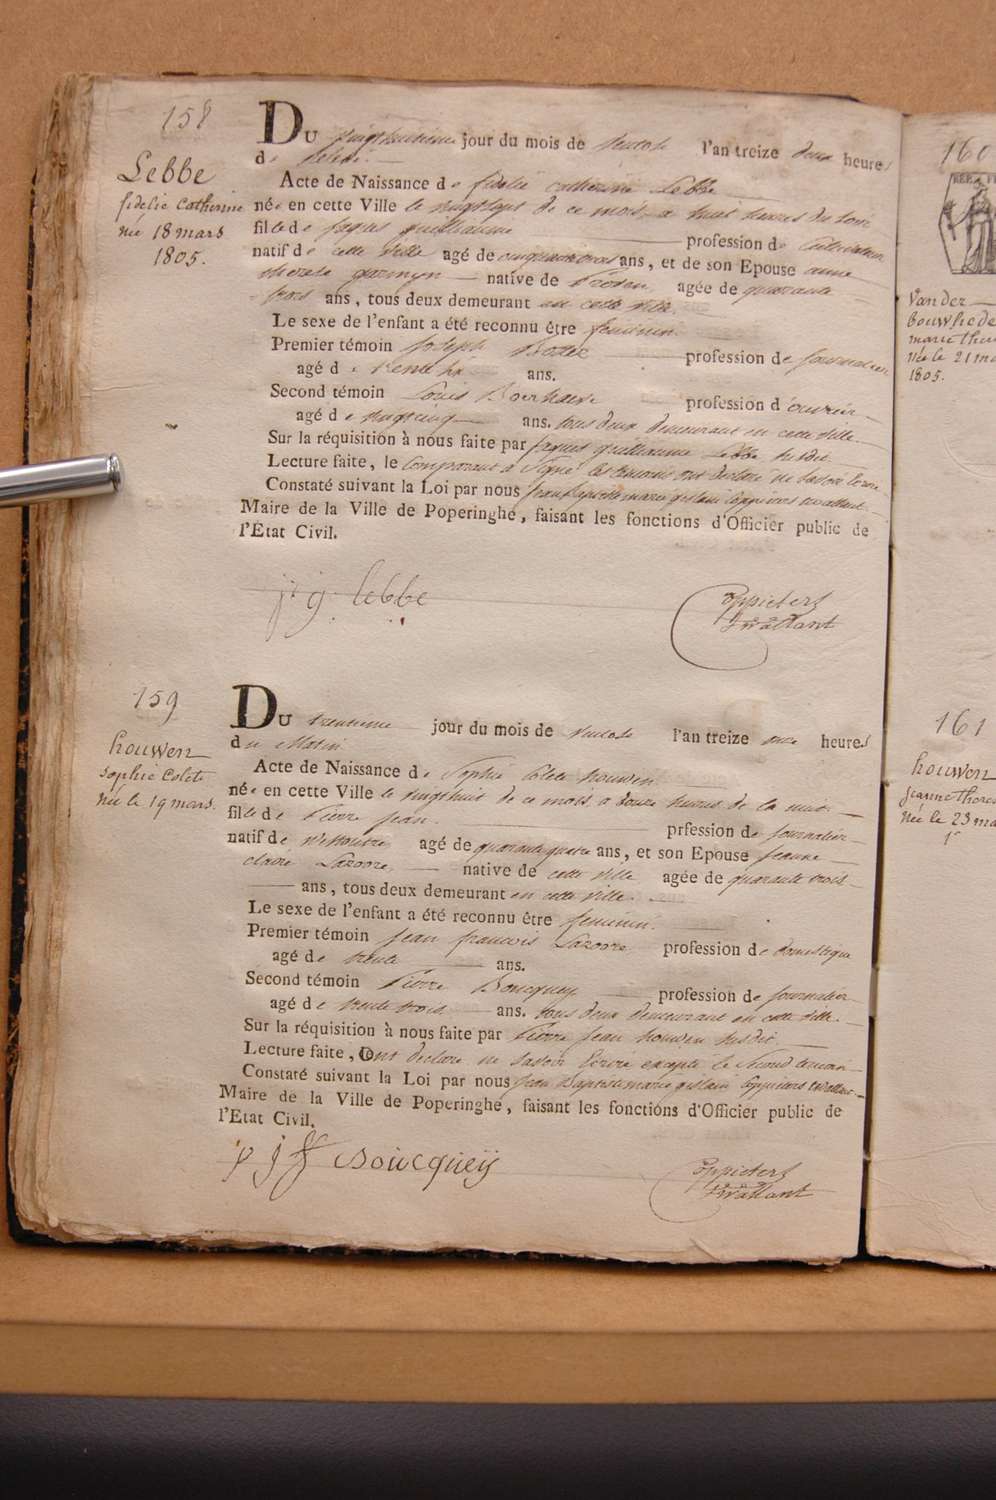 158
Lebbe
fidelie Catherine
née 18 mars
1805.
DU vingthuitieme jour du mois de ventose l'an treize deux heures
de
Acte de Naissance de fidelie catherine Lebbe
née en cette Ville le vingtsept de ce mois, a huit heures du soir
fille de jaques guilliaume profession de Cultivateur
natif de cette ville agé de cinquantetrois ans, et de son Epouse anne
therese garmyn native de agée de quarante
trois ans, tous deux demeurant en cette ville.
Le sexe de l'enfant a été reconnu être feminin.
Premier témoin Joseph profession de journalier
agé de trente six ans.
Second témoin Louis profession d'ouvrier
agé de vingtcinq ans. tous deux demeurant en cette ville.
Sur la réquisition à nous faite par jaques guilliaume Lebbe susdit.
Lecture faite, le Comparant a Signé les temoins ont declaré ne savoir Ecrire
Constaté suivant la Loi par nous jean Baptiste marie gislain Coppieters twallant
Maire de la Ville de Poperinghe, faisant les fonctions d'Officier public de
l'Etat Civil.
j g lebbe
Coppieters
twallant
159
houwen
Sophie Colete
née le 19 mars.
DU trentieme jour du mois de ventose l'an treize onze heures
du Matin
Acte de Naissance de Sophie Colete houwen
née en cette Ville le vingthuit de ce mois a douze heures de la nuit
fille de Pierre jean. prfession de journalier
natif de agé de quarantequatre ans, et son Epouse jeanne
claire native de cette ville agée de quarante trois
ans, tous deux demeurant en cette ville.
Le sexe de l'enfant a été reconnu être feminin.
Premier témoin jean francois profession de domestique
agé de trente ans.
Second témoin Pierre Boucquey profession de journalier
agé de trente trois ans. tous deux demeurant en cette ville.
Sur la réquisition à nous faite par Pierre jean houwen susdit.
Lecture faite, ont declaré ne savoir Ecrire excepté le Second temoin
Constaté suivant la Loi par nous jean Baptiste marie gislain Coppieters twallant
Maire de la Ville de Poperinghe, faisant les fonctions d'Officier public de
l'Etat Civil.
p j f Boucqueÿ
Coppieters
twallant
160
Vander
bouwhede
marie ther
née le 21 ma
1805.
161
houwen
jeanne theres
née le 23 ma